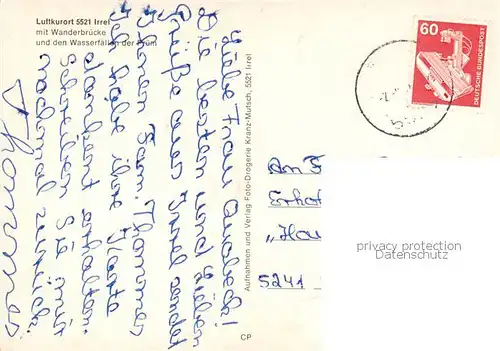 Luftkurort 5521 Irrel
mit Wanderbrücke
und den Wasserfällen der Prüm
Liebe Frau
Die besten und lieben
Grüße aus Irrel sendet
Ihnen Fam. Thommes
Ich habe ihre Karte
dankend erhalten.
Schreiben Sie mir
nochmal zurück.
Thommes
Aufnahmen und Verlag Foto-Drogerie Kranz-Mutsch, 5521 Irrel
CP
60
DEUTSCHE BUNDESPOST
An F
Erhol
„Hau
5241
privacy protection
Datenschutz